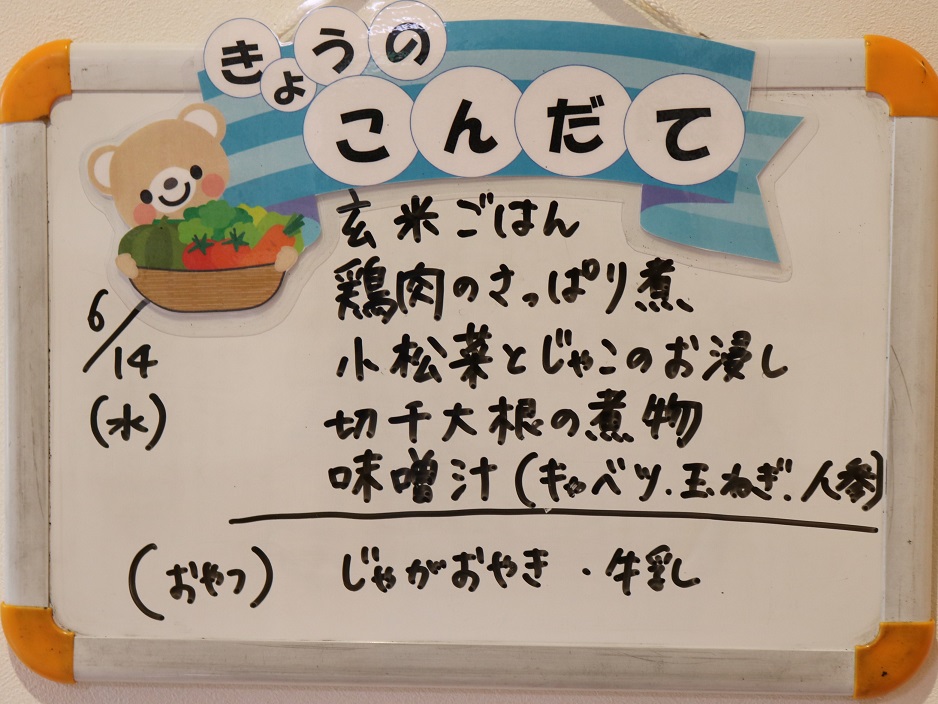 きょうの
こんだて
6/14
(水)
玄米ごはん
鶏肉のさっぱり煮
小松菜とじゃこのお浸し
切干大根の煮物
味噌汁(キャベツ.玉ねぎ.人参)
(おやつ) じゃがおやき・牛乳